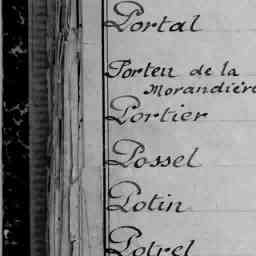 Portal
Porteu de la
Morandière
Portier
Possel
Potin
Potrel